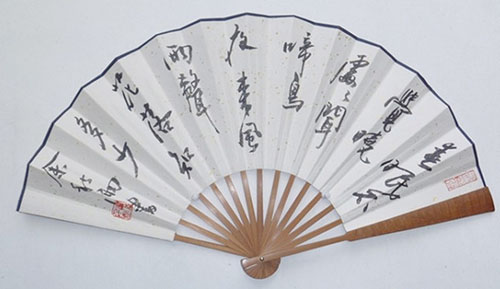 春眠不
覺曉
處々聞
啼鳥
夜来風
雨聲
花落知
多少